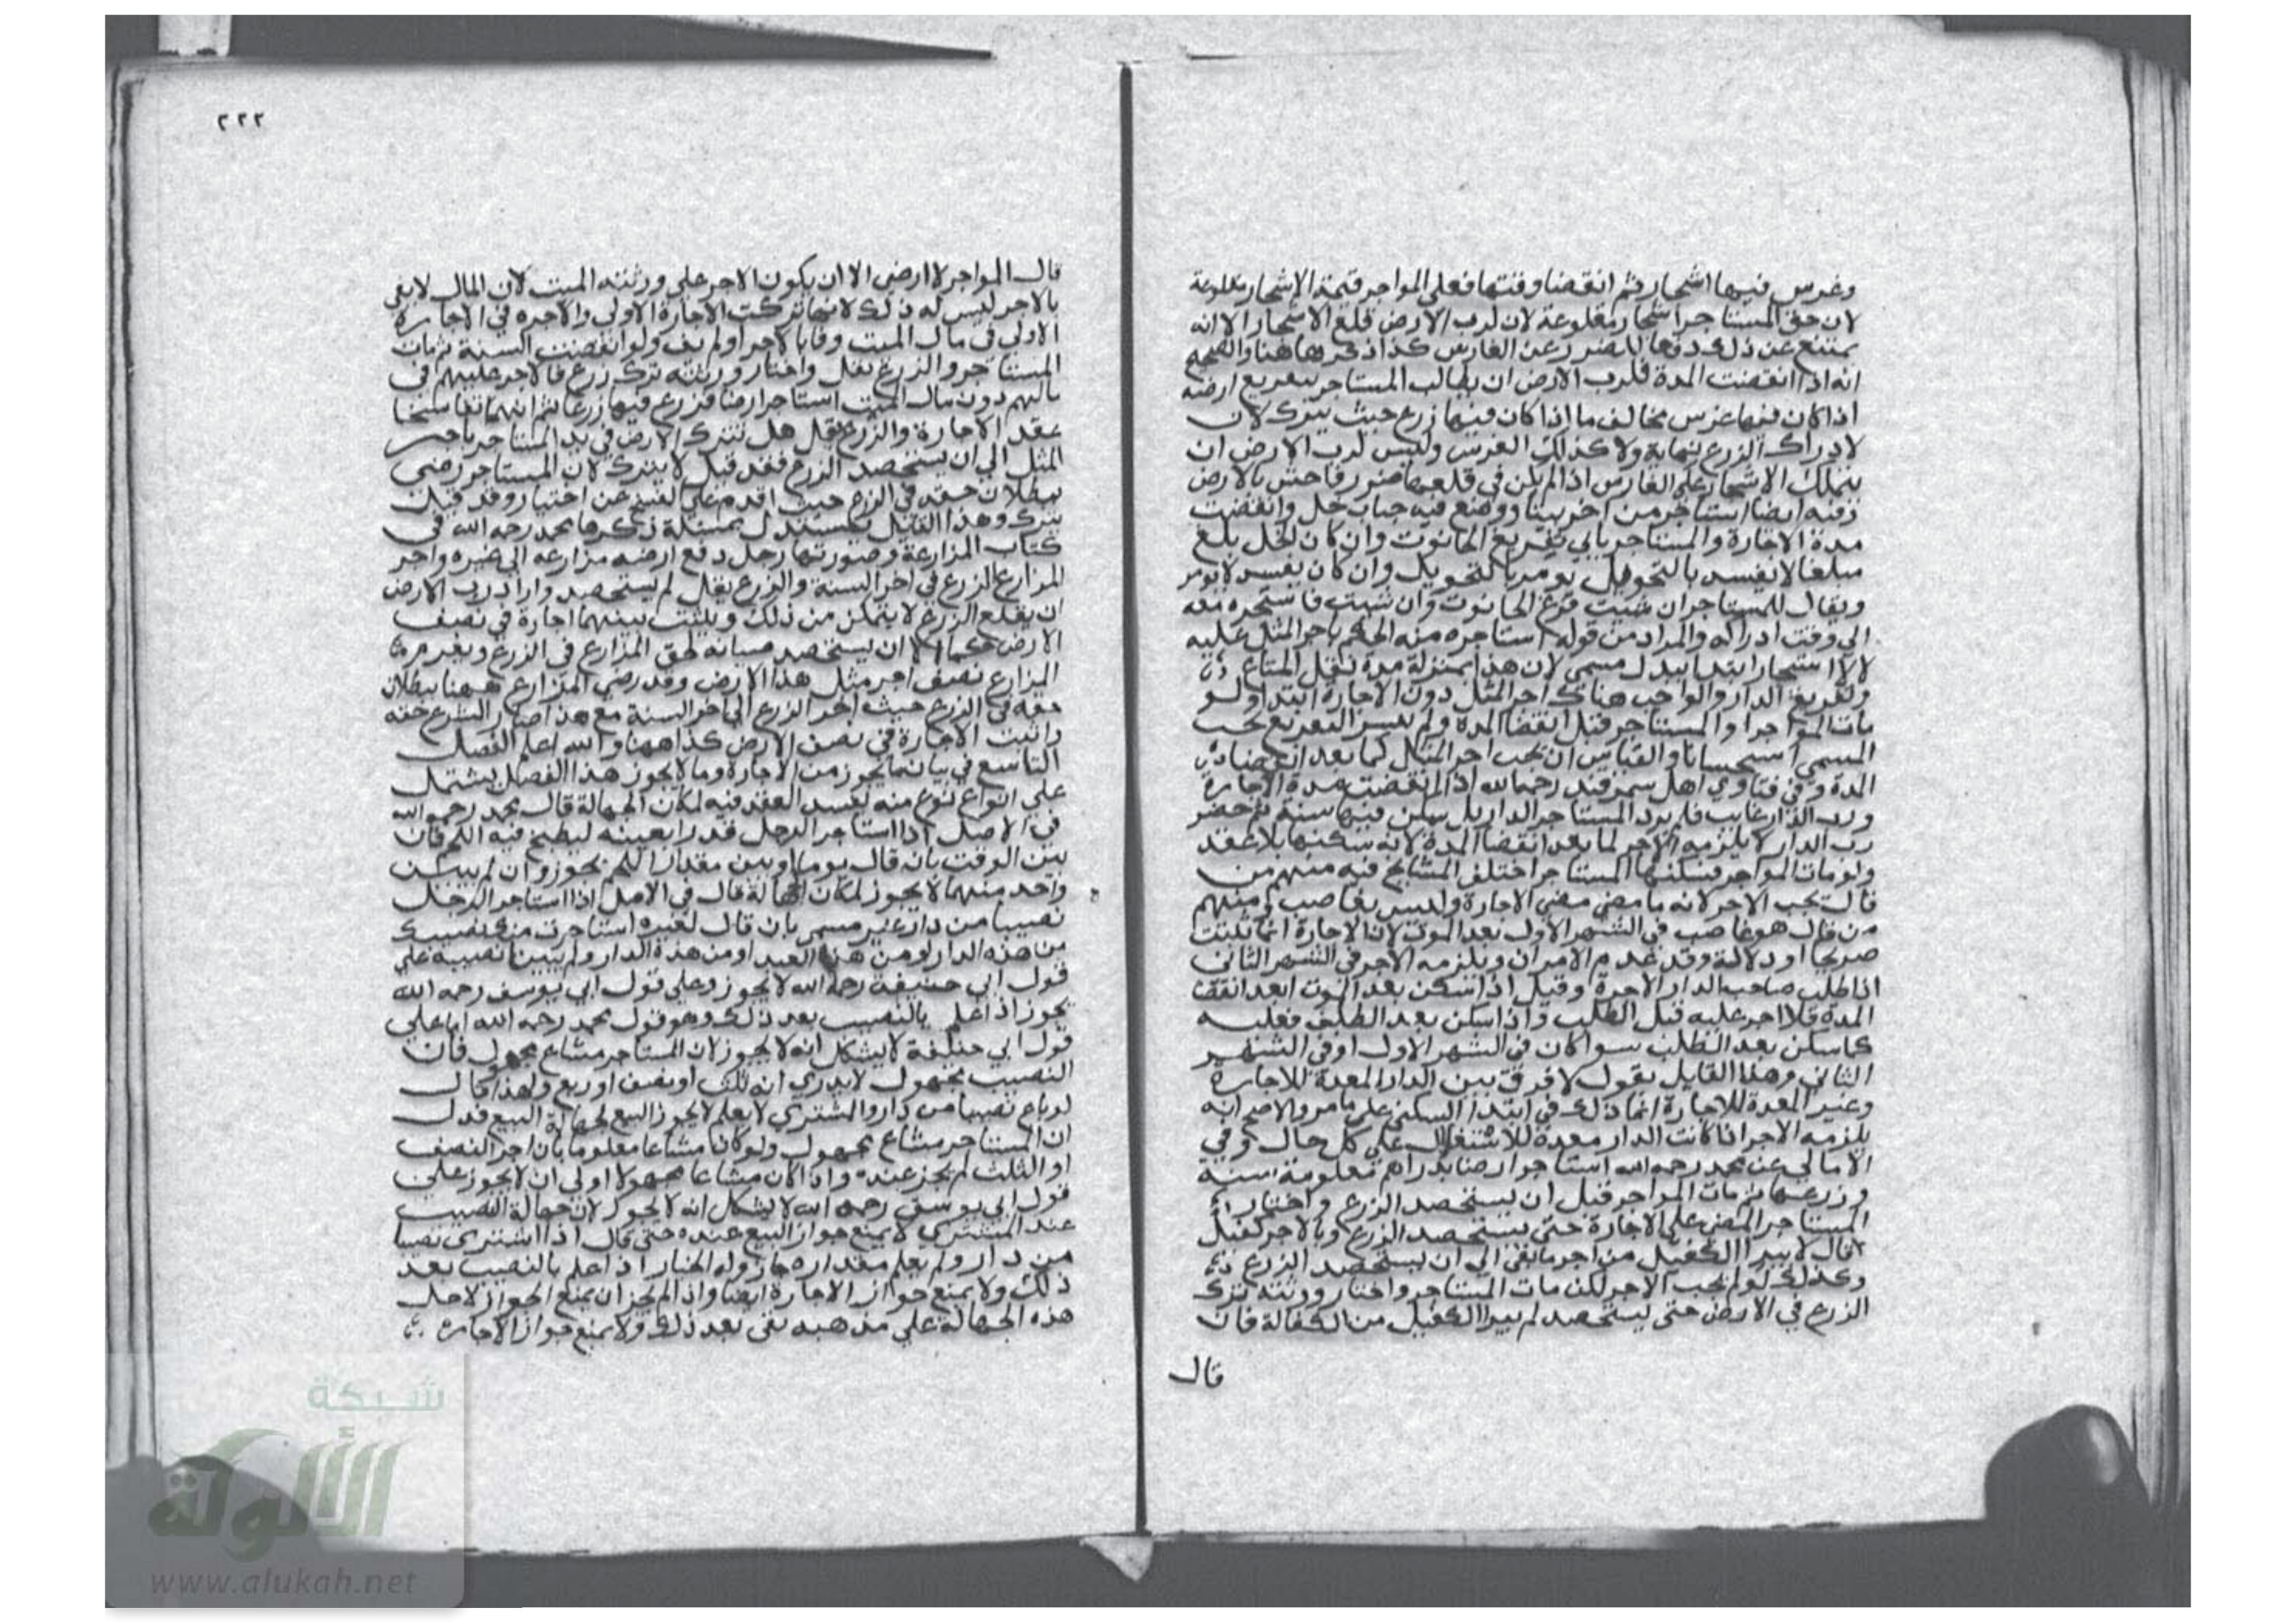 وغرس فيها اشجار ثم انقضا وقتها فعلى المواجر قيمة الاشجار مقلوعة
لان حق المستاجر اشجار مقلوعة لان لرب الارض قلع الاشجار الا انه
يمتنع عن ذلك دفعا للضرر عن الغارس كذا ذكر هاهنا والصحيح
انه اذا انقضت المدة فلرب الارض ان يطالب المستاجر بتفريغ ارضه
اذا كان فيها غرس بخالف ما اذا كان فيها زرع حيث يترك لان
لادراك الزرع نهاية ولا كذلك الغرس وليس لرب الارض ان
يتملك الاشجار على الغارس اذا لم يكن في قلعها ضرر فاحش بالارض
وفيه ايضا استاجر من اخر بيتا ووضع فيه حباب خل وانقضت
مدة الاجارة والمستاجر يابي تفريغ الحانوت وان كان الخل بلغ
مبلغا لا يفسد بالتحويل يومر بالتحويل وان كان يفسد لا يومر
ويقال للمستاجر ان شيت فرغ الحانوت وان شيت فاستجره منه
الى وقت ادراكه والمراد من قوله استاجره منه الحكم باجر المثل عليه
لا الاستيجار ابتدا ببدل مسمى لان هذا بمنزلة مدة نقل المتاع
وتفريغ الدار والواجب هناك اجر المثل دون الاجارة ابتدا ولو
مات المواجر او المستاجر قبل انقضا المدة ولم يتيسر التفريغ يجب
المسمى استحسانا والقياس ان يجب اجر المثل كما بعد انقضا
المدة وفي فتاوي اهل سمرقند رحمه الله اذا انقضت مدة الاجارة
ورب الدار غايب فلم يرد المستاجر الدار بل سكن فيها سنة ثم حضر
رب الدار لا يلزمه الاجر لما بعد انقضا المدة لانه سكنها بلا عقد
ولو مات المواجر فسكنها المستاجر اختلف المشايخ فيه منهم من
قال تجب الاجر لانه ما مضى مضى الاجارة وليس بغاصب ومنهم
من قال هو غاصب في الشهر الاول بعد الموت لان الاجارة انما تثبت
صريحا او دلالة وقد عدم الامران ويلزمه الاجر في الشهر الثاني
اذا طلب صاحب الدار الاجرة وقيل اذا سكن بعد الموت ابعد انقضا
المدة فلا اجر عليه قبل الطلب واذا سكن بعد الطلب فعليه
كما سكن بعد الطلب سوا كان في الشهر الاول او في الشهر
الثاني وهذا القايل يقول لا فرق بين الدار المعدة للاجارة
وغير المعدة للاجارة انما ذلك في ابتدا السكنى على ما مر والاصح انه
يلزمه الاجر اذا كانت الدار معدة للاستغلال على كل حال وفي
الامالي عن محمد رحمه الله استاجر ارضا بدراهم معلومة سنة
وزرعها ثم مات المواجر قبل ان يستحصد الزرع واختار
المستاجر المضي على الاجارة حتى يستحصد الزرع وبالاجر كفيل
قال لا يبرا الكفيل من اجر ما بقي الى ان يستحصد الزرع
وكذلك لو لم يجب الاجر لكن مات المستاجر واختار ورثته ترك
الزرع في الارض حتى يستحصد لم يبرا الكفيل من الكفالة فان
قال
٢٢٢
قال المواجر لا ارضى الا ان يكون الاجر على ورثته الميت لان المال لا يفي
بالاجر ليس له ذلك لانها تركت الاجارة الاولى والاجره في الاجارة
الاولى في مال الميت وفا بالاجر او لم يف ولو انقضت السنة ثم مات
المستاجر والزرع بقل واختار ورثته ترك زرع فالاجر عليهم في
مالهم دون مال الميت استاجر ارضا فزرع فيها زرعا ثم انهما تفاسخا
عقد الاجارة والزرع بقل هل تترك الارض في يد المستاجر باجر
المثل الى ان يستحصد الزرع فقد قيل لا يترك لان المستاجر رضي
ببطلان حقه في الزرع حيث اقدم على الفسخ عن اختيار وقد قيل
يترك وهذا القايل يستدل بمسئلة ذكرها محمد رحمه الله في
كتاب المزارعة وصورتها رجل دفع ارضه مزارعه الى غيره واخر
المزارع الزرع في اخر السنة والزرع بقل لم يستحصد واراد رب الارض
ان يقلع الزرع لا يتمكن من ذلك ويثبت بينهما اجارة في نصف
الارض حكما الى ان يستحصد صيانه لحق المزارع في الزرع ويغرم
المزارع نصف اجر مثل هذا الارض وقد رضي المزارع ههنا ببطلان
حقه في الزرع حيث اخر الزرع الى اخر السنة مع هذا صان الشرع حقه
واثبت الاجارة في نصف الارض كذا ههنا والله اعلم الفصل
التاسع في بيان ما يجوز من الاجارة وما لا يجوز هذا الفصل يشتمل
على انواع نوع منه يفسد العقد فيه لمكان الجهالة قال محمد رحمه الله
في الاصل اذا استاجر الرجل قدرا بعينه ليطبخ فيه اللحم فان
بين الوقت بان قال يوما او بين مقدار اللحم يجوز وان لم يبين
واحد منهما لا يجوز لمكان الجهالة قال في الاصل اذا استاجر الرجل
نصيبا من دار غير مسمى بان قال لغيره استاجرت منك نصيبك
من هذه الدار او من هذا العبد او من هذه الدار ولم يبين نصيبه على
قول ابي حنيفة رحمه الله لا يجوز وعلى قول ابي يوسف رحمه الله
يجوز اذا علم بالنصيب بعد ذلك وهو قول محمد رحمه الله اما على
قول ابي حنيفة لا يشكل انه لا يجوز لان المستاجر مشاع مجهول فان
النصيب مجهول لا يدري انه ثلث او نصف او ربع ولهذا قال
لو باع نصيبا من دار والمشتري لا يعلم لا يجوز البيع لجهالة البيع فدل
ان المستاجر مشاع مجهول ولو كان مشاعا معلوما بان اجر النصف
او الثلث لم يجز عنده واذا كان مشاعا مجهولا اولى ان لا يجوز على
قول ابي يوسف رحمه الله لا يشكل انه لا يجوز لان جهالة النصيب
عند المشتري لا يمنع جواز البيع عنده حتى قال اذا اشترى نصيبا
من دار ولم يعلم مقداره جاز وله الخيار اذا علم بالنصيب بعد
ذلك ولا يمنع جواز الاجارة ايضا واذا لم يجز ان يمنع الجواز لاجل
هذه الجهالة على مذهبه بقى بعد ذلك ولا يمنع جواز الاجاره
شبكة
الألوكة
www.alukah.net